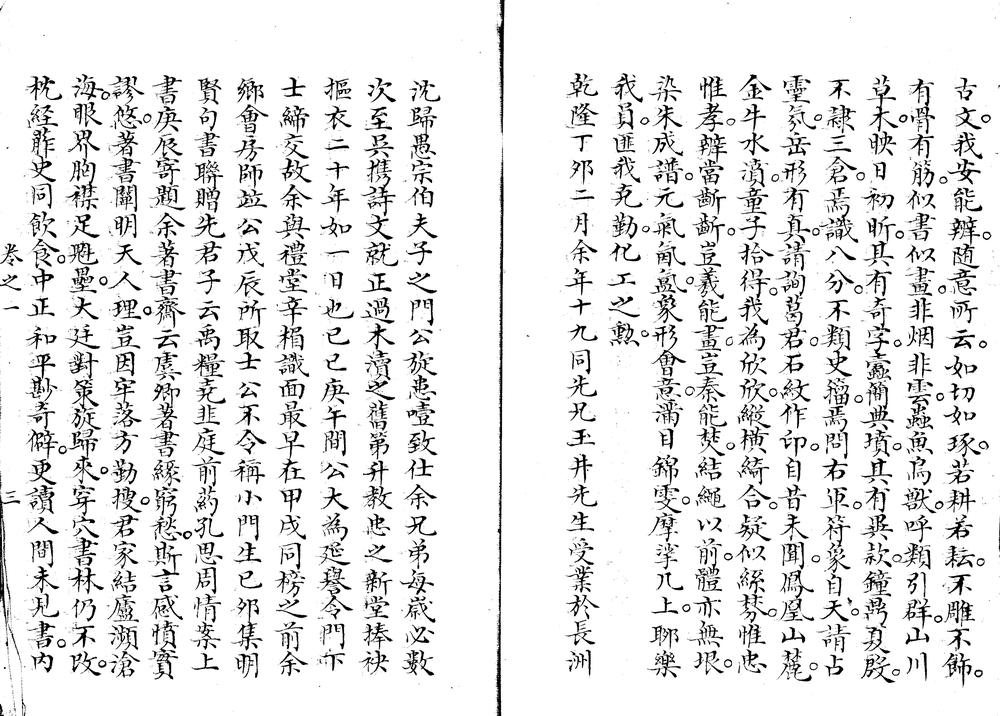 古文我安能辨随意所云如切如琢若耕若耘不雕不飾
有骨有筋似書似畫非烟非雲蟲魚鳥獸呼類引群山川
草木映日初昕具有奇字蠹簡典墳其有異款鐘鼎夏殷
不隷三倉焉識八分不類史籀焉問右軍符象自天請占
靈氛岳形有真請詢葛君石紋作印自昔未聞鳳凰山麓
金牛水濆童子拾得我為欣欣縱横綺合疑似絲棼惟忠
惟孝辨當斷斷豈羲能畫豈秦能焚結繩以前體亦無垠
染朱成譜元氣氤氳象形會意滿目錦雯摩挲几上聊樂
我員匪我克勤化工之勲
乾隆丁夘二月余年十九同先兄玉井先生受業於長洲
沈歸愚宗伯夫子之門公旋患噎致仕余兄弟每歲必數
次至吳携詩文就正過木瀆之舊第升教忠之新堂捧袂
摳衣二十年如一日也己巳庚午間公大為延譽令門下
士締交故余與禮堂辛楣識面最早在甲戌同榜之前余
鄉會房師並公戊辰所取士公不令稱小門生己夘集明
賢句書聯贈先君子云禹糧堯韭庭前葯孔思周情案上
書庚辰寄題余著書齋云虞卿著書緣窮愁斯言感憤實
謬悠著書闡明天人理豈因牢落方勤搜君家結廬瀕滄
海眼界胸襟足魁壘大廷對策旋歸來穿穴書林仍不改
枕經胙史同飲食中正和平尠奇僻更讀人間未見書内
卷之一 三